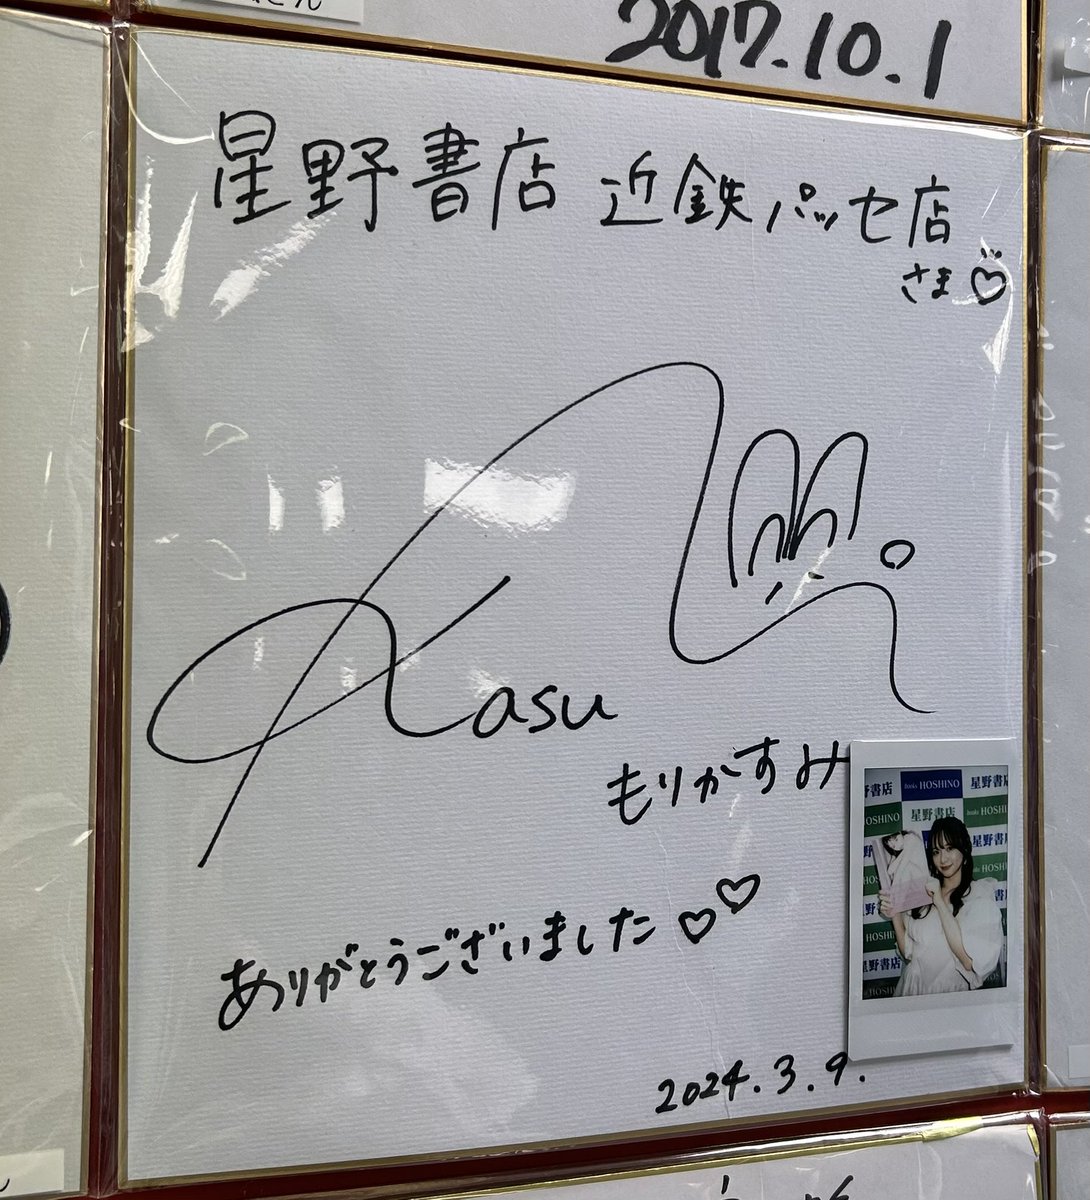 2017.10.1
星野書店 近鉄パッセ店
さま
Kasu
もりかすみ
ありがとうございました
2024.3.9.
books HOSHINO
星野書店
HOSHINO
星野書店
HOSHINO
星野書店